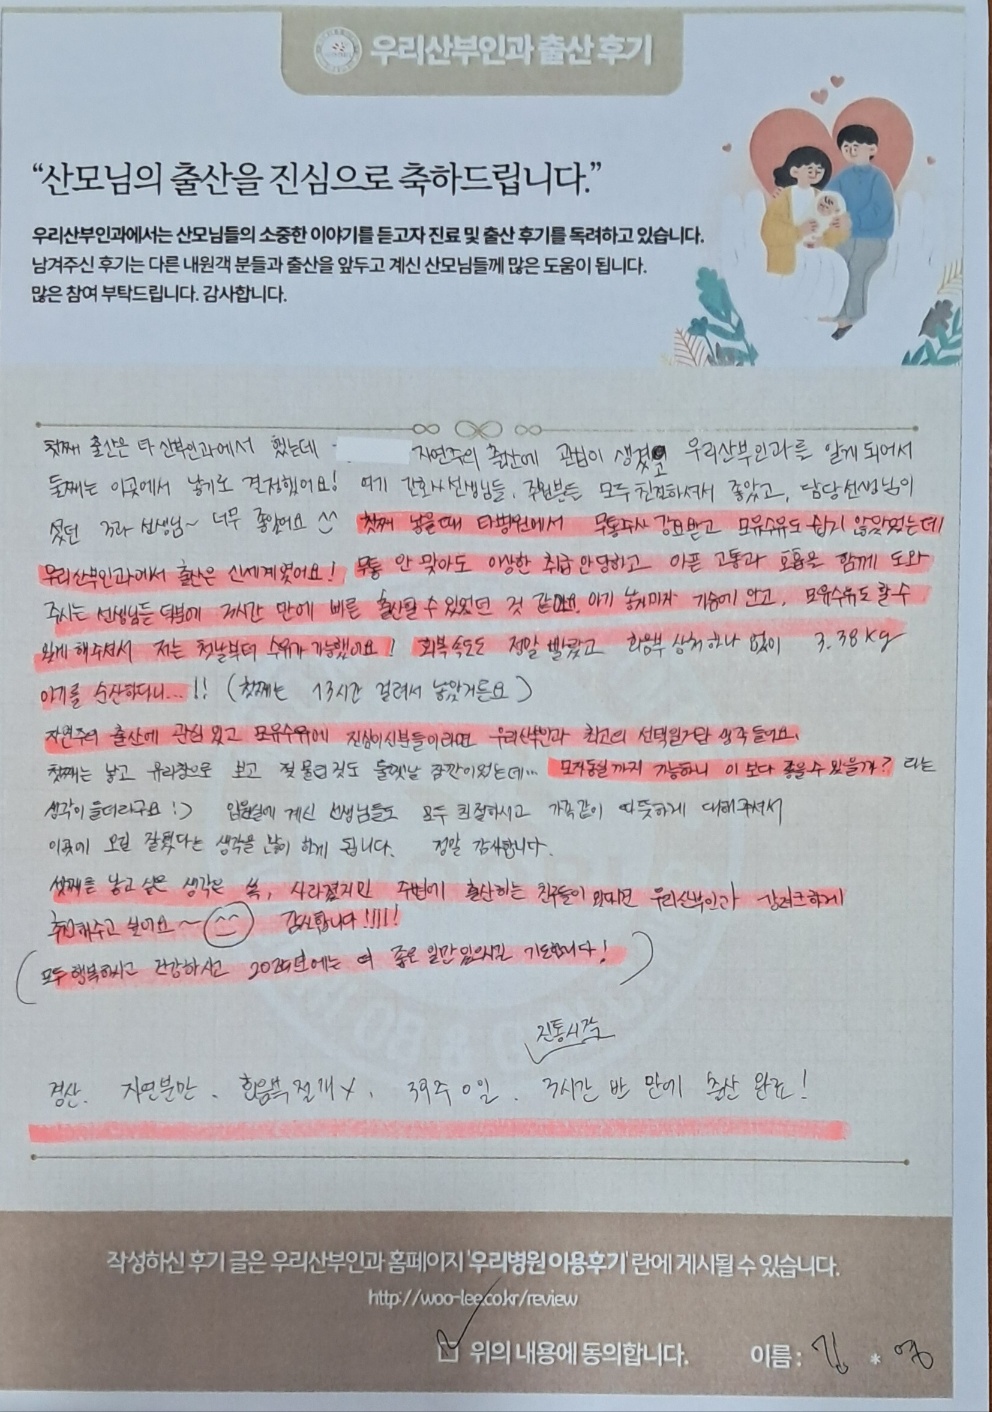 우리산부인과 출산 후기
“산모님의 출산을 진심으로 축하드립니다.”
우리산부인과에서는 산모님들의 소중한 이야기를 듣고자 진료 및 출산 후기를 독려하고 있습니다.
남겨주신 후기는 다른 내원객 분들과 출산을 앞두고 계신 산모님들께 많은 도움이 됩니다.
많은 참여 부탁드립니다. 감사합니다.
첫째 출산은 타 산부인과에서 했는데 자연주의 출산에 관심이 생겼고 우리산부인과를 알게 되어서
둘째는 이곳에서 낳기로 결정했어요! 여기 간호사선생님들, 주변분들 모두 친절하셔서 좋았고, 담당선생님이
셨던 3과 선생님~ 너무 좋았어요 ^^ 첫째 낳을때 타병원에서 무통주사 강요받고 모유수유도 쉽지 않았었는데
우리산부인과에서 출산은 신세계였어요! 무통 안 맞아도 이상한 취급 안당하고 아픈 고통과 호흡을 함께 도와
주시는 선생님들 덕분에 3시간 만에 빠른 출산할 수 있었던 것 같아요. 아기 낳자마자 가슴에 안고, 모유수유도 할 수
있게 해주셔서 저는 첫날부터 수유가 가능했어요! 회복속도도 정말 빨랐고 회음부 상처 하나 없이 3.38kg
아기를 순산하다니...!! (첫째는 13시간 걸려서 낳았거든요)
자연주의 출산에 관심 있고 모유수유에 진심이신분들이라면 우리산부인과 최고의 선택일거란 생각 들어요.
첫째는 낳고 유리창으로 보고 젖 물린것도 둘쨋날 잠깐이었는데... 모자동실까지 가능하니 이 보다 좋을수 있을까? 라는
생각이 들더라구요 :) 입원실에 계신 선생님들도 모두 친절하시고 가족같이 따뜻하게 대해주셔서
이곳에 오길 잘했다는 생각을 많이 하게 됩니다. 정말 감사합니다.
셋째를 낳고 싶은 생각은 쏙, 사라졌지만 주변에 출산하는 친구들이 있다면 우리산부인과 강력하게
추천해주고 싶어요~ ^^ 감사합니다!!!!!
(모두 행복하시고 건강하시고 2025년에는 더 좋은 일만 있으시길 기도합니다!)
진통시작
경산. 자연분만. 회음부 절개X. 39주 0일. 3시간 반 만에 출산 완료!
작성하신 후기 글은 우리산부인과 홈페이지 '우리병원 이용후기' 란에 게시될 수 있습니다.
http://woo-lee.co.kr/review
위의 내용에 동의합니다. 이름 : 김 * 영